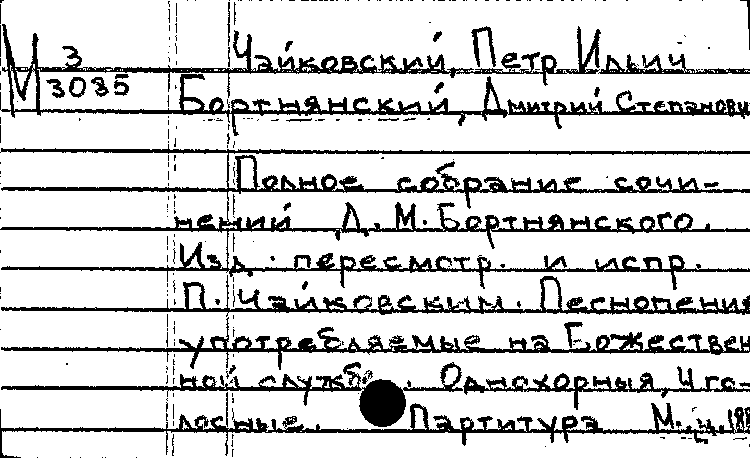 М 3/3085
Чайковский, Петр Ильич
Бортнянский, Дмитрий Степанович
Полное собрание сочи-
нений Д. М. Бортнянского.
Изд. пересмотр. и испр.
П. Чайковским. Песнопения
употребляемые на Божествен
ной службе. Однохорныя, 4 го-
лосные. Партитура М., ц. 188